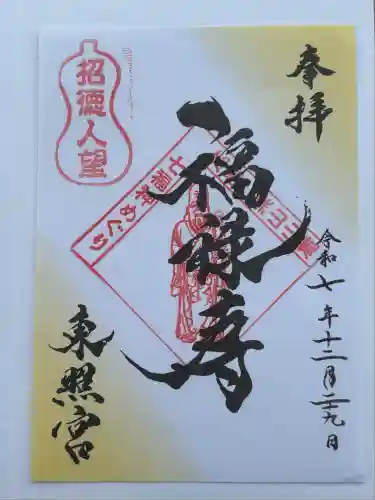 奉拝
福禄寿
令和七年十二月二十九日
東照宮
招徳人望
七福神めぐり